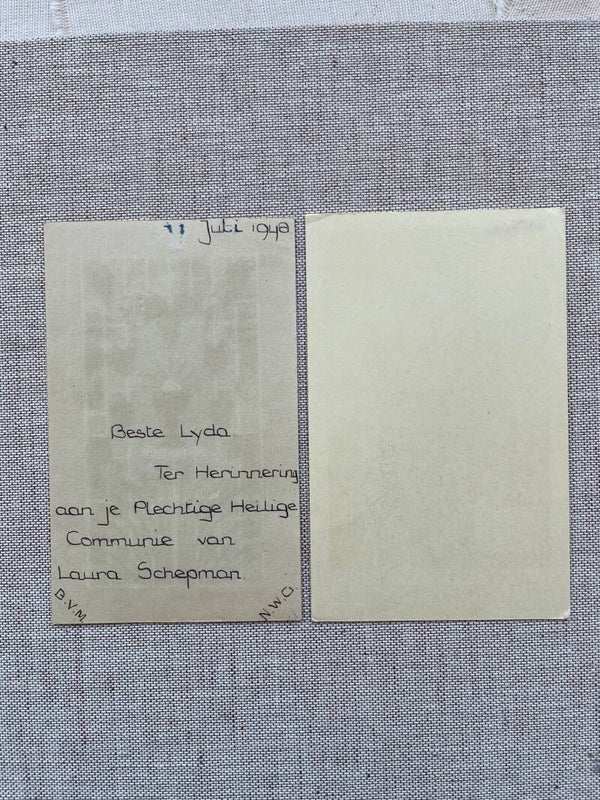 11 Juli 1948
Beste Lyda.
Ter Herinnering
aan je Plechtige Heilige
Communie van
Laura Schepman.
B.V.M. N.W.O.